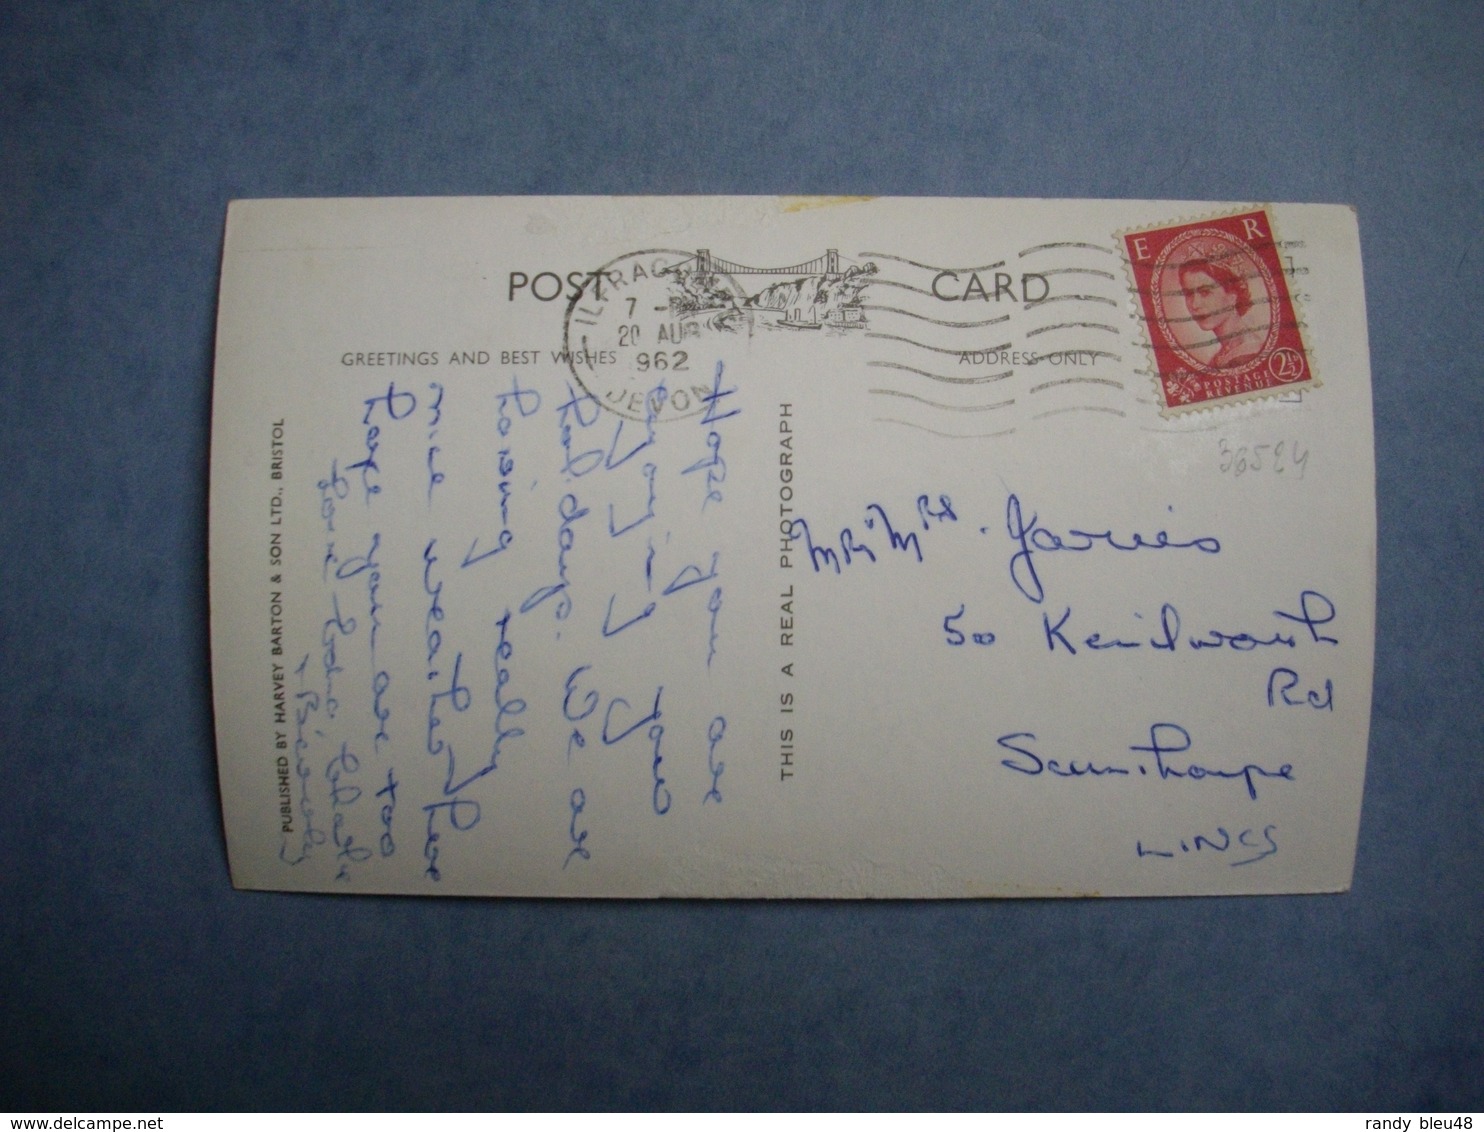 POST CARD
GREETINGS AND BEST WISHES
ADDRESS ONLY
ILFRAC
7
20 AUG
1962
DEVON
E R
POSTAGE
REVENUE
2½
36524
Hope you are
enjoying your
holidays. We are
having really
nice weather here
hope you are too
Love Edna, Charlie
+ Beverley
PUBLISHED BY HARVEY BARTON & SON LTD., BRISTOL
THIS IS A REAL PHOTOGRAPH
Mr & Mrs. Jarvis
50 Kenilworth
Rd
Scunthorpe
LINCS
randy bleu48